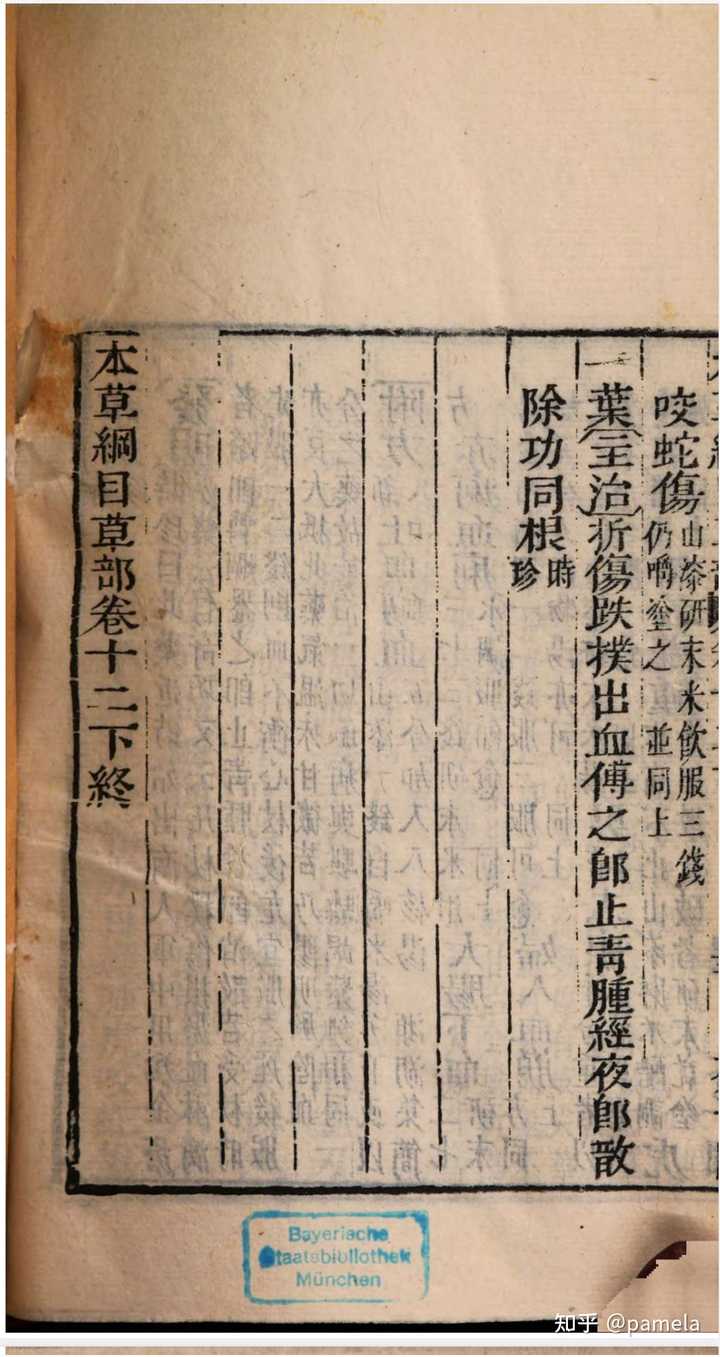 咬蛇傷山漆研末米飲服三錢仍嚼塗之並同上
葉主治折傷跌撲出血傅之卽止青腫經夜卽散
除功同根時珍
本草綱目草部卷十二下終
Bayerische
Staatsbibliothek
München
知乎 @pamela